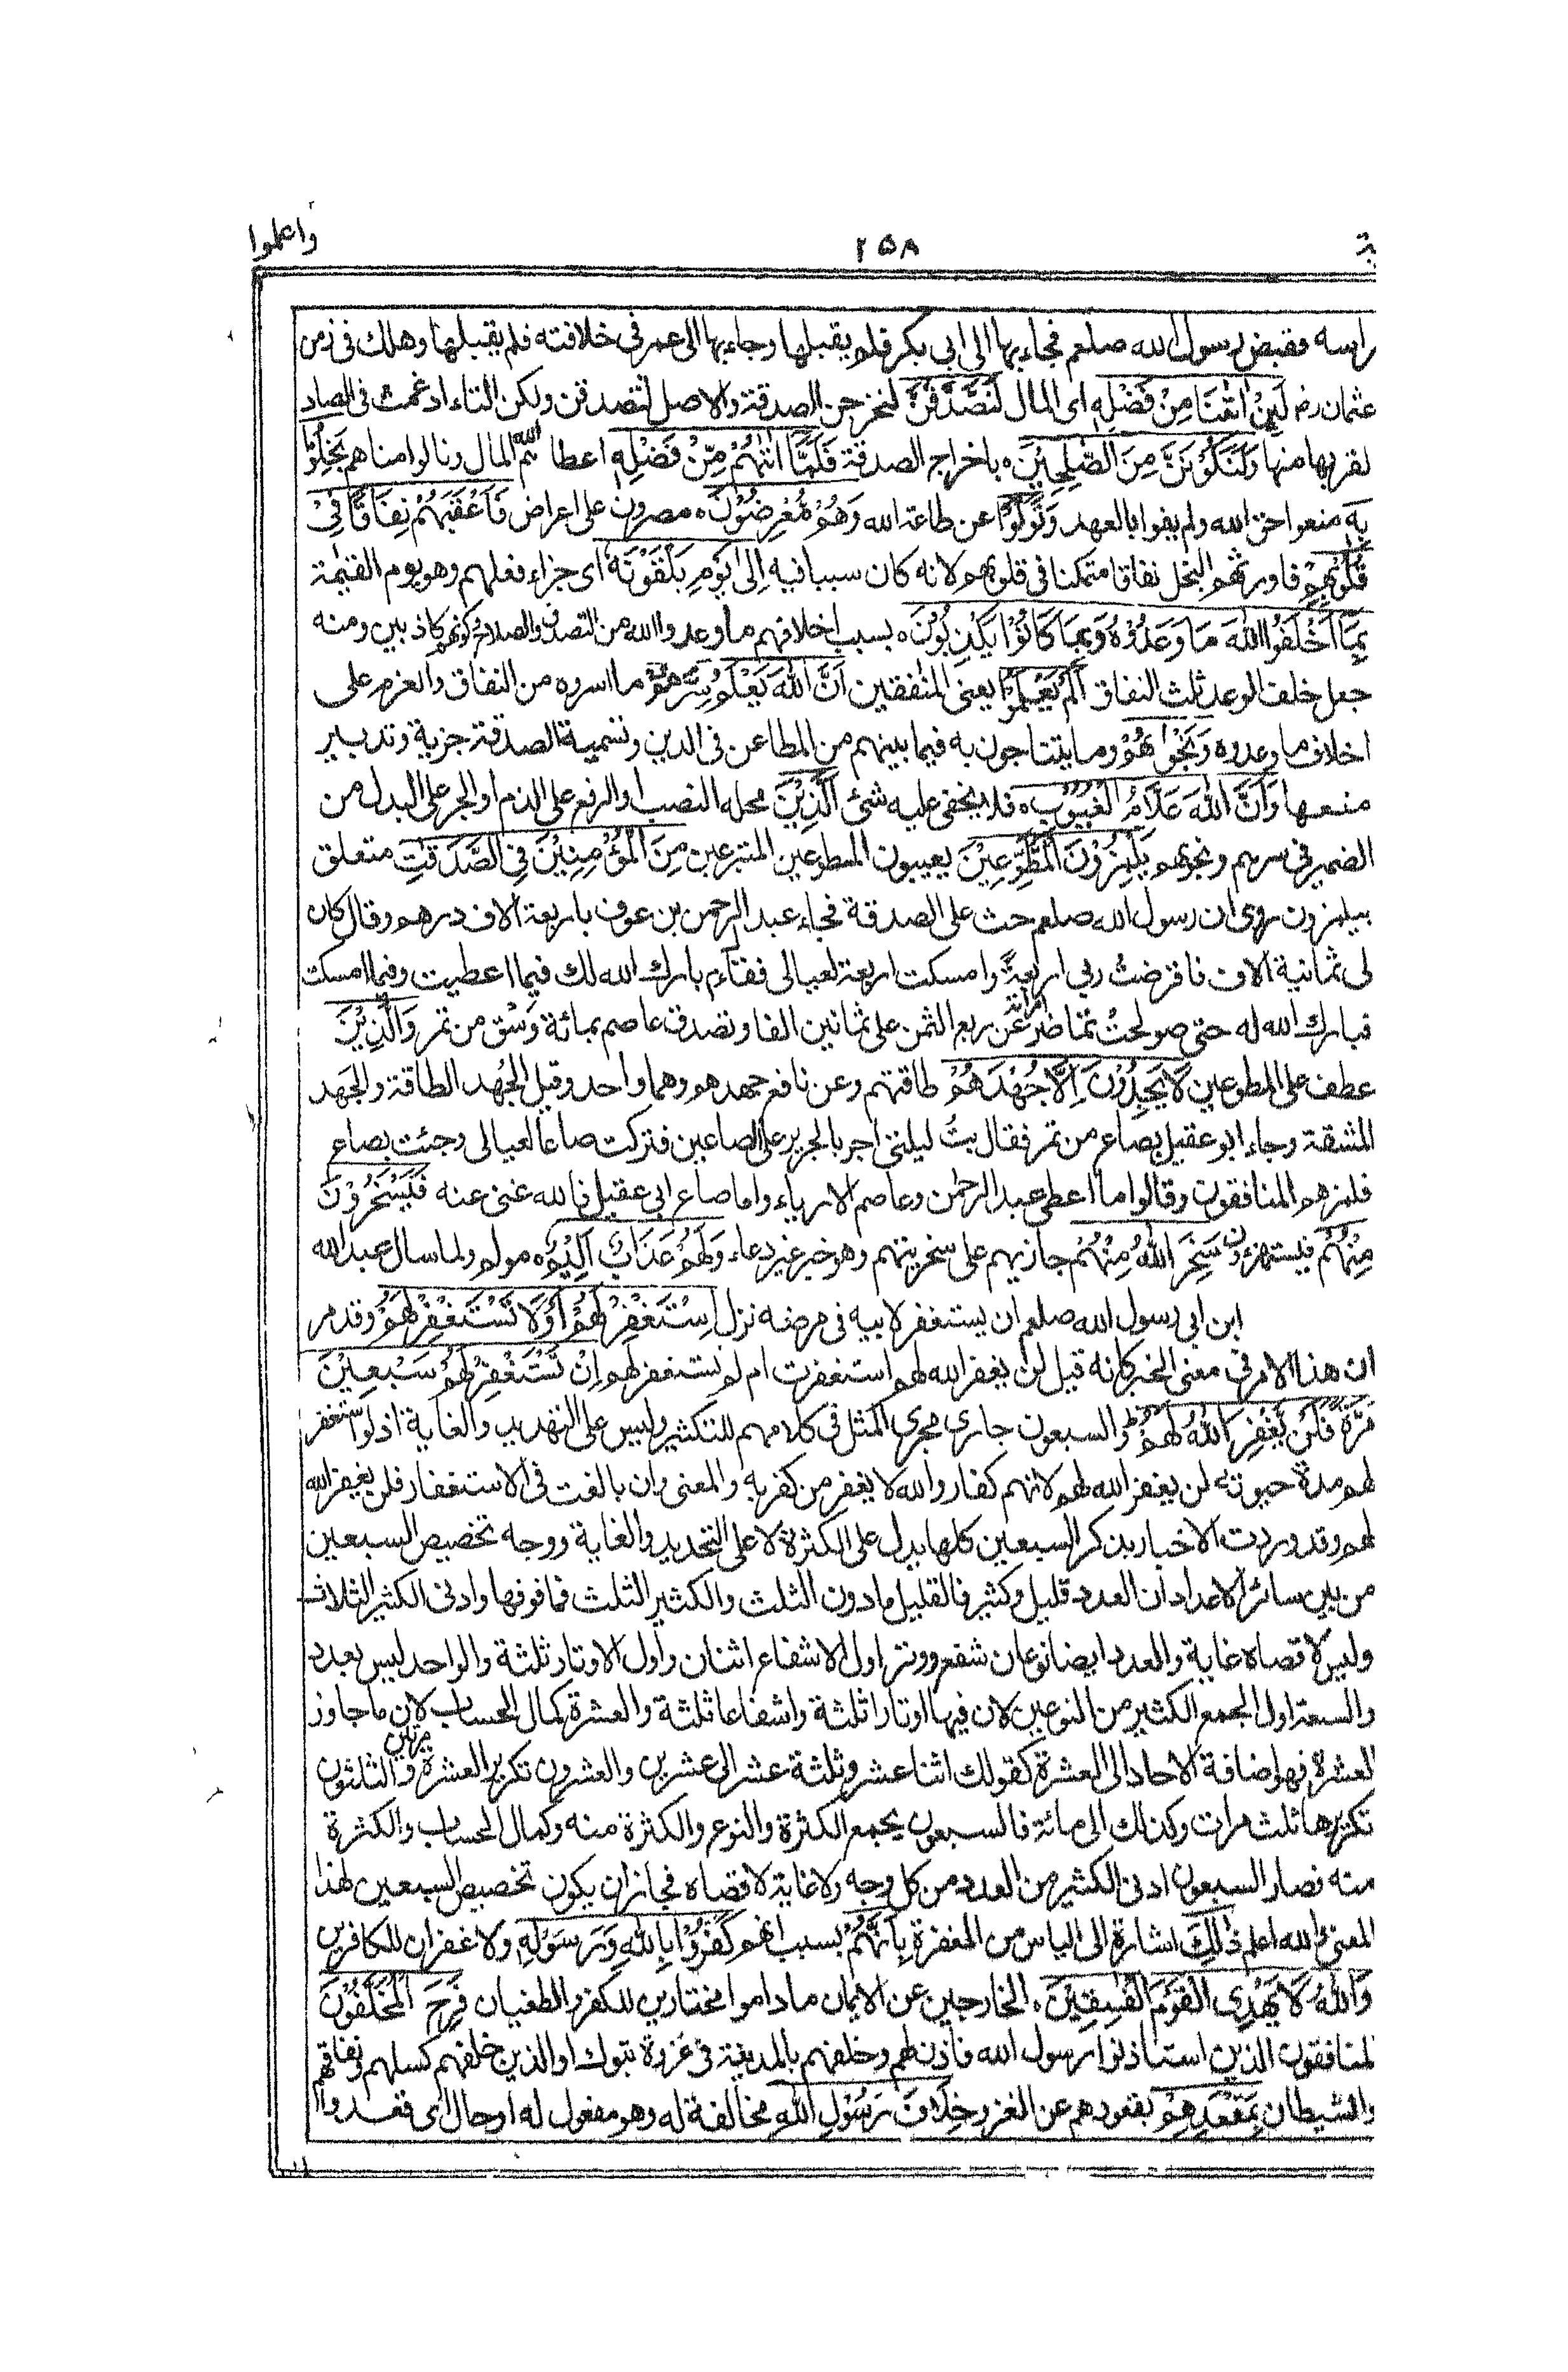 واعلموا
٢٥٨
راسه فقبض رسول الله صلعم فجاء بها الى ابى بكر فلم يقبلها وجاء بها الى عمر فى خلافته فلم يقبلها وهلك فى زمن
عثمان رض لَئِنْ اٰتٰىنَا مِنْ فَضْلِهٖ اى المال لَنَصَّدَّقَنَّ لنخرجن الصدقة والاصل لنتصدقن ولكن التاء ادغمت فى الصاد
لقربها منها وَلَنَكُوْنَنَّ مِنَ الصّٰلِحِيْنَ باخراج الصدقة فَلَمَّا اٰتٰىهُمْ مِّنْ فَضْلِهٖ اعطاهم الله المال ونالوا مناهم بَخِلُوْا
بِهٖ منعوا حق الله ولم يفوا بالعهد وَتَوَلَّوْا عن طاعة الله وَهُمْ مُّعْرِضُوْنَ مصرون على اعراض فَاَعْقَبَهُمْ نِفَاقًا فِىْ
قُلُوْبِهِمْ فاورثهم البخل نفاقا متمكنا فى قلوبهم لانه كان سببا فيه اِلٰى يَوْمِ يَلْقَوْنَهٗ اى جزاء فعلهم وهو يوم القيٰمة
بِمَا اَخْلَفُوا اللّٰهَ مَا وَعَدُوْهُ وَبِمَا كَانُوْا يَكْذِبُوْنَ بسبب اخلافهم ما وعدوا الله من التصدق والصلاح وكونهم كاذبين ومنه
جعل خلف الوعد ثلث النفاق اَلَمْ يَعْلَمُوْا يعنى المنٰفقين اَنَّ اللّٰهَ يَعْلَمُ سِرَّهُمْ ما اسروه من النفاق والعزم على
اخلاف ما وعدوه وَنَجْوٰىهُمْ وما يتناجون به فيما بينهم من المطاعن فى الدين وتسمية الصدقة جزية وتدبير
منعها وَاَنَّ اللّٰهَ عَلَّامُ الْغُيُوْبِ فلا يخفى عليه شئ اَلَّذِيْنَ محله النصب او الرفع على الذم او الجر على البدل من
الضمير فى سرهم ونجوٰهم يَلْمِزُوْنَ الْمُطَّوِّعِيْنَ يعيبون المطوعين المتبرعين مِنَ الْمُؤْمِنِيْنَ فِى الصَّدَقٰتِ متعلق
بيلمزون روى ان رسول الله صلعم حث على الصدقة فجاء عبد الرحمن بن عوف باربعة اٰلاف درهم وقال كان
لى ثمانية اٰلاف فاقرضت ربى اربعةً وامسكت اربعة لعيالى فقال م بارك الله لك فيما اعطيت وفيما امسكت
فبارك الله له حتى صولحت تماضر امراته عن ربع الثمن على ثمانين الفا وتصدق عاصم بمائة وَسْق من تمر وَالَّذِيْنَ
عطف على المطوعين لَا يَجِدُوْنَ اِلَّا جُهْدَهُمْ طاقتهم وعن نافع جهدهم وهما واحد وقيل الجُهد الطاقة والجَهد
المشقة وجاء ابو عقيل بصاع من تمر فقال بتُّ ليلتى اجر بالجرير على الصاعين فتركت صاعا لعيالى وجئت بصاع
فلمزهم المنافقون وقالوا ما اعطى عبد الرحمٰن وعاصم الا رياء واما صاع ابى عقيل فالله غنى عنه فَيَسْخَرُوْنَ
مِنْهُمْ فيستهزءون سَخِرَ اللّٰهُ مِنْهُمْ جازيهم على سخريتهم وهو خبر غير دعاء وَلَهُمْ عَذَابٌ اَلِيْمٌ مولم ولما سال عبد الله
ابن ابى رسول الله صلعم ان يستغفر لابيه فى مرضه نزل اِسْتَغْفِرْ لَهُمْ اَوْ لَا تَسْتَغْفِرْ لَهُمْ وقد مر
ان هذا الامر فى معنى الخبر كانه قيل لن يغفر الله لهم استغفرت ام لم تستغفر لهم اِنْ تَسْتَغْفِرْ لَهُمْ سَبْعِيْنَ
مَرَّةً فَلَنْ يَّغْفِرَ اللّٰهُ لَهُمْ ط والسبعون جارى مجرى المثل فى كلامهم للتكثير وليس على التهديد والغاية اذ لو استغفر
لهم مدة حيوته لن يغفر الله لهم لانهم كفار والله لا يغفر من كفر به والمعنى وان بالغت فى الاستغفار فلن يغفر الله
لهم وقد وردت الاخبار بذكر السبعين كلها يدل على الكثرة لا على التحديد والغاية ووجه تخصيص السبعين
من بين سائر الاعداد ان العدد قليل وكثير فالقليل ما دون الثلث والكثير الثلث فما فوقها وادنى الكثير الثلاث
وليس لاقصاه غاية والعدد ايضا نوعان شفع ووتر اول الاشفاع اثنان واول الاوتار ثلثة والواحد ليس بعدد
والسبعة اول الجمع الكثير من النوعين لان فيها اوتارا ثلثة واشفاعا ثلثة والعشرة كمال الحساب لان ما جاوز
العشرة فهو اضافة الاحاد الى العشرة كقولك اثنا عشر وثلثة عشر الى عشرين والعشرون تكرير العشرة مرتين والثلثون
تكريرها ثلث مرات وكذلك الى مائة فالسبعون يجمع الكثرة والنوع والكثرة منه وكمال الحساب والكثرة
منه فصار السبعون ادنى الكثير من العدد من كل وجه ولا غاية لاقصاه فجاز ان يكون تخصيص السبعين لهذا
المعنى والله اعلم ذٰلِكَ اشارة الى الياس من المغفرة بِاَنَّهُمْ بسبب انهم كَفَرُوْا بِاللّٰهِ وَرَسُوْلِهٖ ولا غفران للكافرين
وَاللّٰهُ لَا يَهْدِى الْقَوْمَ الْفٰسِقِيْنَ الخارجين عن الايمان ما داموا مختارين للكفر والطغيان فَرِحَ الْمُخَلَّفُوْنَ
لمنافقون الذين استاذنوا رسول الله فاذن لهم وخلفهم بالمدينة فى غزوة تبوك او الذين خلفهم كسلهم ونفاقهم
والشيطان بِمَقْعَدِهِمْ بقعودهم عن الغزو خِلٰفَ رَسُوْلِ اللّٰهِ مخالفة له وهو مفعول له او حال اى قعدوا